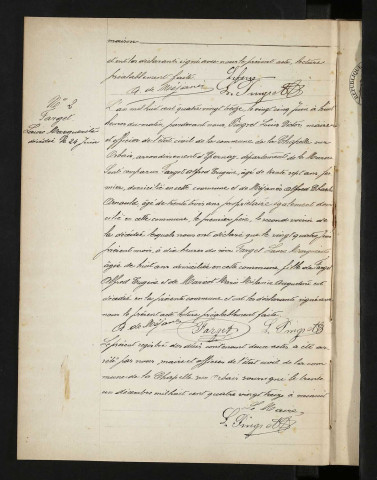 maison
et ont les déclarants signé avec nous le présent acte, lecture
préalablement faite.
A. de Méjanes
N° 2
Farget
Laure Marguerite
décédée le 24 juin
L'an mil huit cent quatre vingt treize, le vingt cinq juin à huit
heures du matin, pardevant nous Louis maire
et officier de l'état civil de la commune de la Chapelle sur
Orbais, arrondissement d'Epernay, département de la Marne
sont comparus Farget Alfred Eugène, âgé de trente sept ans
domicilié en cette commune et de Méjanes Alfred
âgé de trente trois ans, propriétaire également domi-
cilié en cette commune, le premier père, le second voisin de
la décédée, lesquels nous ont déclaré que le vingt quatre juin
présent mois, à dix heures du soir Farget Laure Marguerite
âgée de huit ans domiciliée en cette commune, fille de Farget
Alfred Eugène et de Marie Mélanie Augustine est
décédée en la présente commune et ont les déclarants signé avec
nous le présent acte lecture préalablement faite.
A. de Méjanes Farget
Le présent registre des décès contenant deux actes a été ar-
rêté par nous, maire et officier de l'état civil de la com-
mune de la Chapelle sur Orbais le trente
un décembre mil huit cent quatre vingt treize à
Le Maire